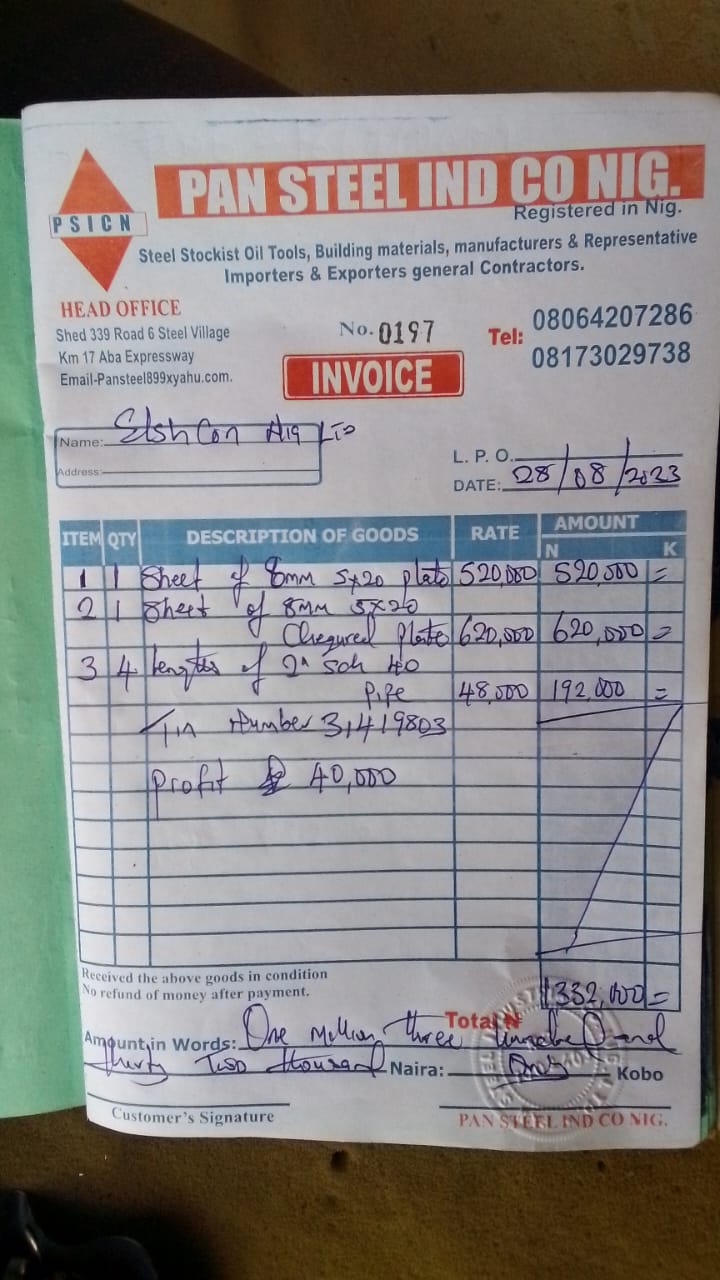 PSICN
PAN STEEL IND CO NIG.
Registered in Nig.
Steel Stockist Oil Tools, Building materials, manufacturers & Representative
Importers & Exporters general Contractors.
HEAD OFFICE
Shed 339 Road 6 Steel Village
Km 17 Aba Expressway
Email-Pansteel899xyahu.com.
No. 0197
INVOICE
Tel: 08064207286
08173029738
Name: Elshcon Nig Ltd
Address:
L. P. O.
DATE: 28/08/2023
ITEM QTY DESCRIPTION OF GOODS RATE AMOUNT
N K
1 1 Sheet of 8mm 5x20 plate 520,000 520,000 =
2 1 Sheet of 8mm 5x20
Chequred Plate 620,000 620,000 =
3 4 lengths of 2" sch 40
pipe 48,000 192,000 =
Tin Number 31419803
Profit 40,000
Received the above goods in condition
No refund of money after payment.
1332,000 =
Total N
Amount in Words: One million three hundred and
thirty two thousand Naira: Only Kobo
Customer's Signature
PAN STEEL IND CO NIG.